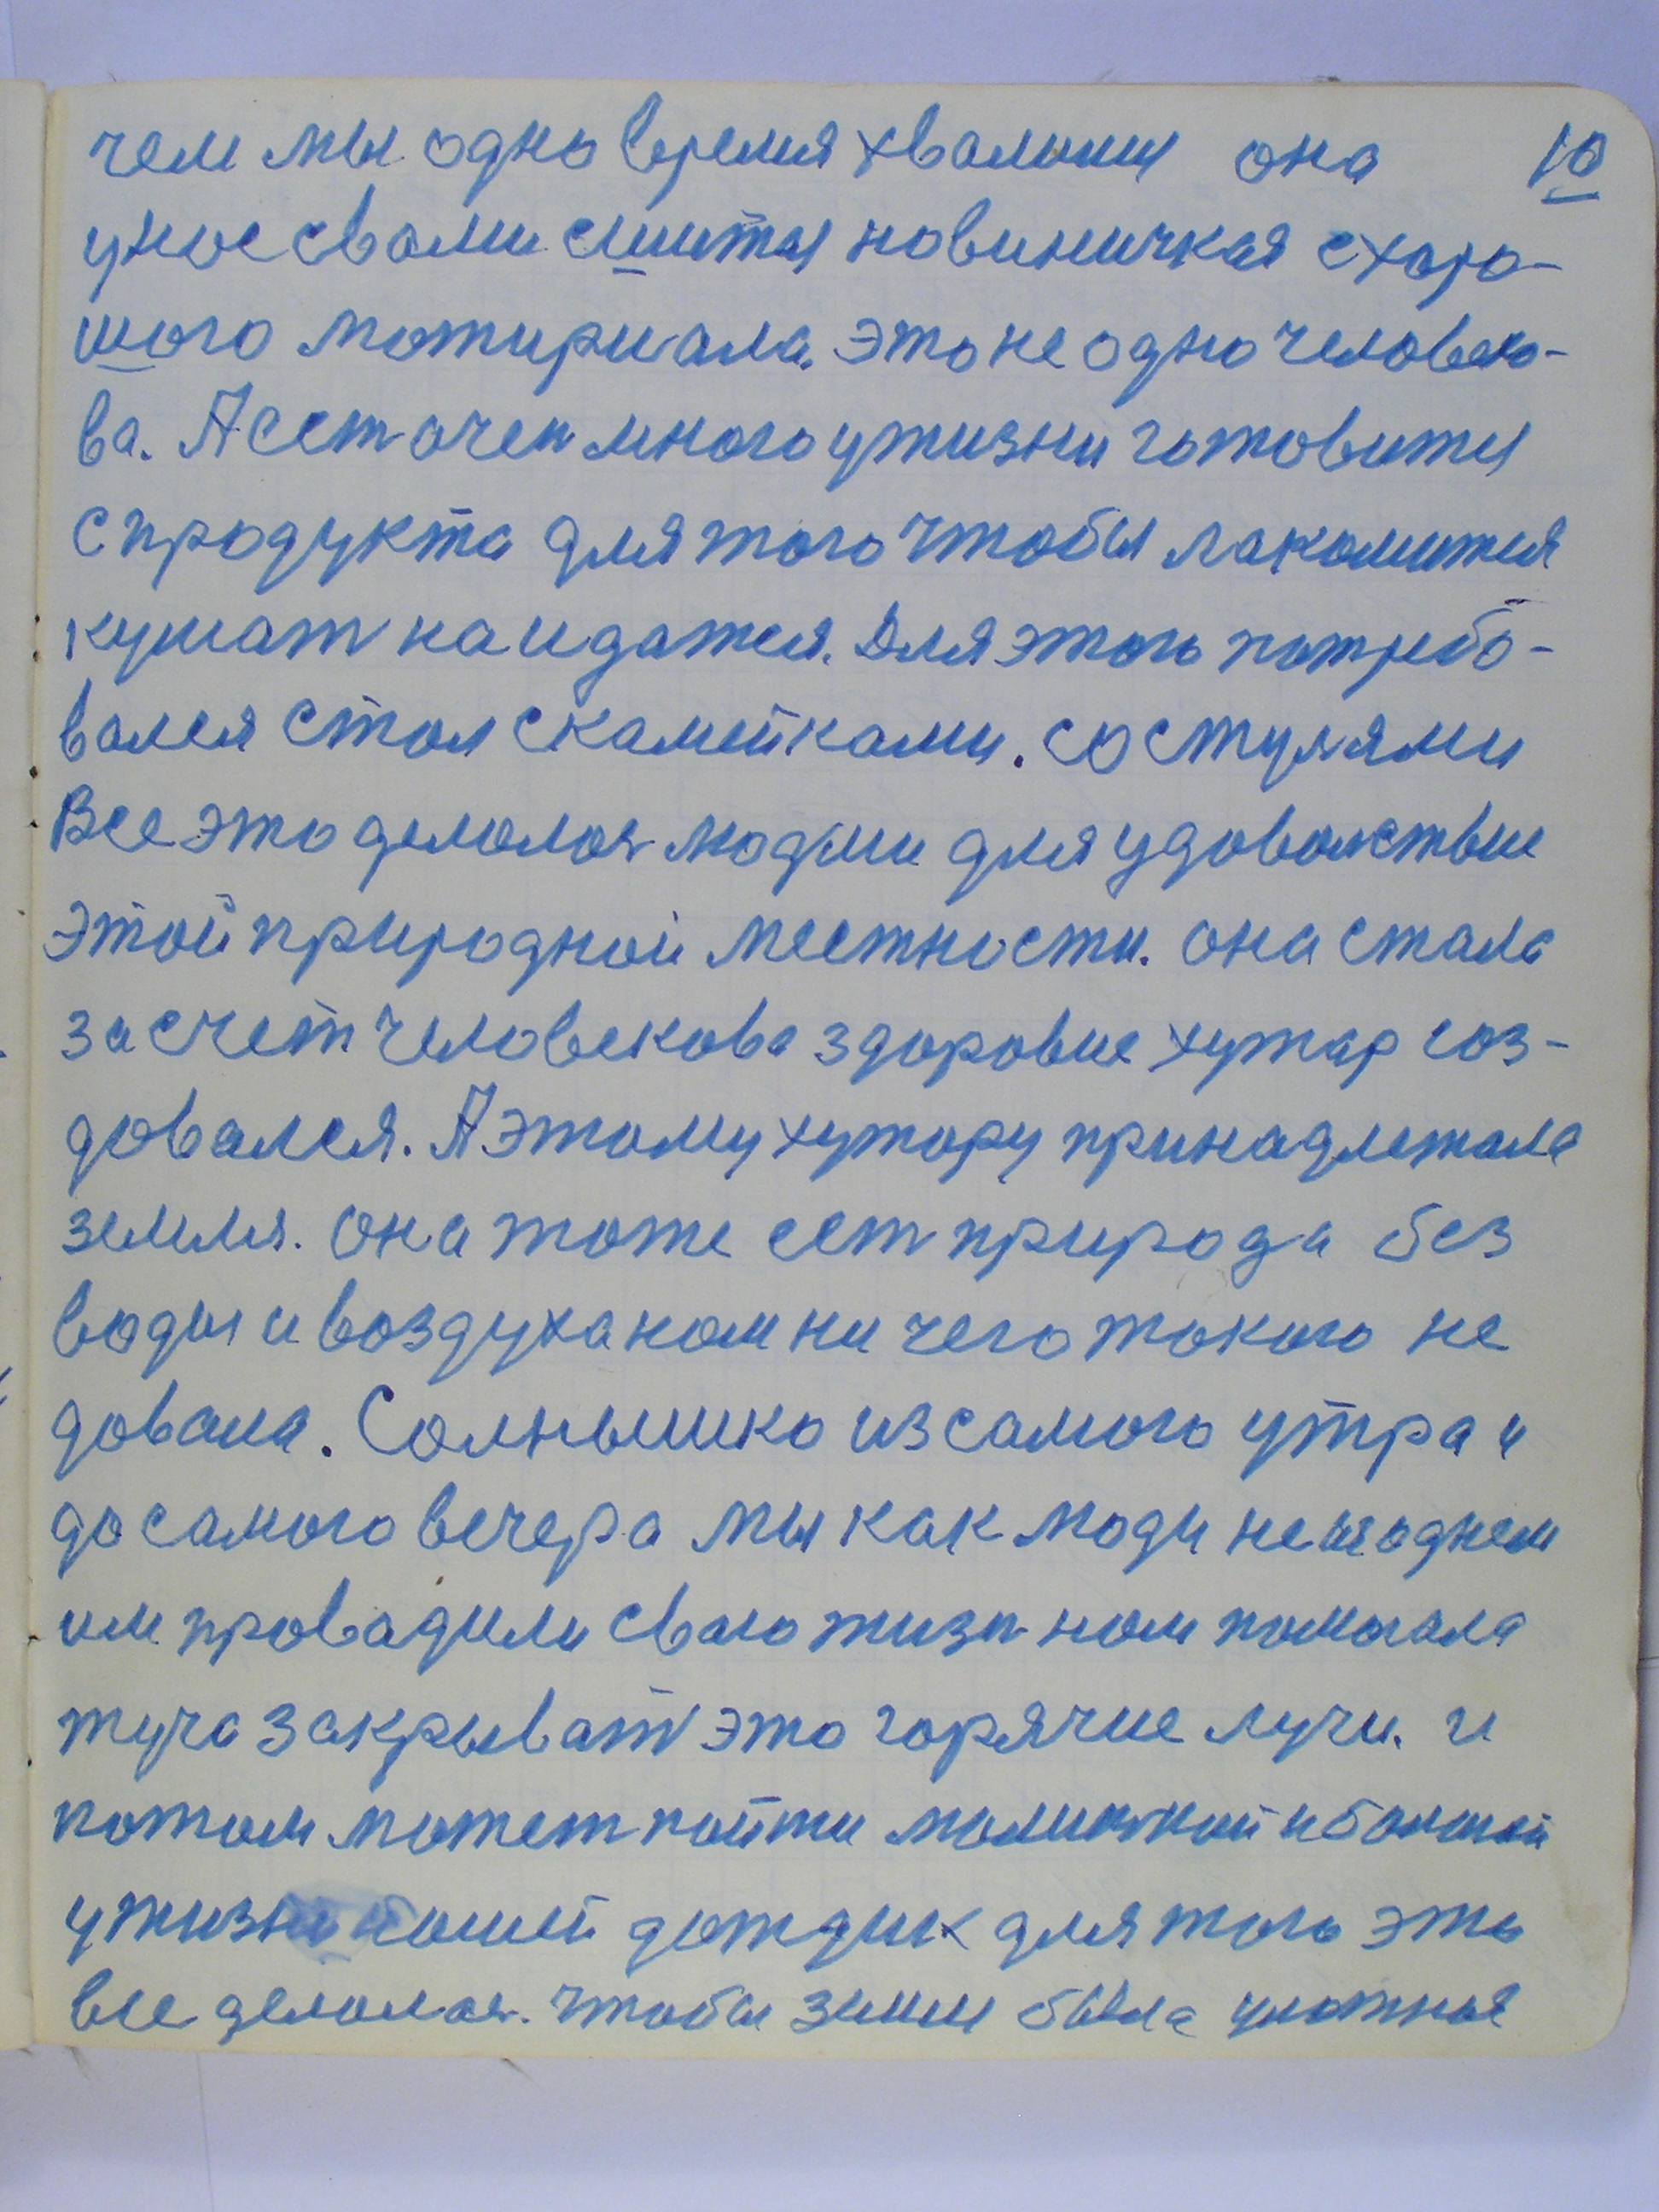 чем мы одно время хвалимся она 10
унас свами сшитая новиничкая схоро-
шого матириала. это не одно человеко-
ва. А ест очен много ужизни готовится
с продукта для того чтобы лакомится
кушат наидатся. Для этого потребо-
вался стол скамейками. со стулями
Все это делолос людми для удоволствие
этой природной местности. она стала
за счет человекова здоровие хутар соз-
довался. А этому хутору принадлежала
земля. она тоже ест природа без
воды и воздуха нам ни чего токого не
довала. Солнышко из самого утра и
до самого вечера мы как люди не
им провадили сваю жизн нам помогала
туча закрыват это горячие лучи. и
потомможет пойти малинкой и болшой
ужизни нашей дождик для того это
все делолос. чтобы земля была